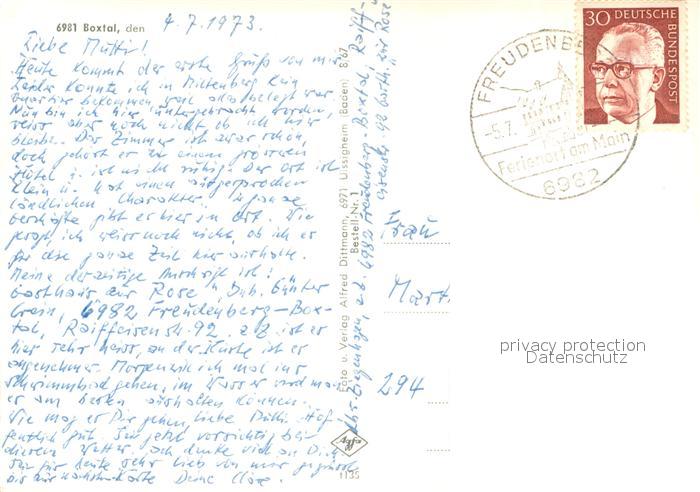 6981 Boxtal, den 4.7.1973.
Liebe Mutti!
Heute kommt der erste Gruß von mir.
Leider konnte ich in Miltenberg kein
Quartier bekommen, weil alles belegt war.
Nun bin ich hier untergebracht worden,
weiss aber noch nicht, ob ich hier
bleibe. Das Zimmer ist zwar schön,
doch gehört er zu einem grösseren
Hotel u. ist nicht ruhig. Der Ort ist
klein u. hat einen ausgesprochen
ländlichen Charakter.
gibt es hier im Ort. Wie
gesagt, ich weiss noch nicht, ob ich es
für die ganze Zeit hier aushalte.
Meine derzeitige Anschrift ist:
Gasthaus zur Rose, Inh. Günter
6982 Freudenberg-Box-
tal, Raiffeisenstr. 92. z.Z. ist es
hier sehr heiss, an der Küste ist es
angenehmer. Morgen will ich mal ins
Schwimmbad gehen, im Wasser wird man
es am besten aushalten können.
Wie mag es Dir gehen, liebe Mutti. Hof-
fentlich gut. Sei jetzt vorsichtig bei
diesem Wetter. Ich denke viel an Dich.
Sei für heute sehr lieb von mir gegrüsst
bis zur nächsten Karte Deine
Foto u. Verlag Alfred Dittmann, 6971 Uissigheim (Baden) B 67
Bestell-Nr. 1
Agfa
1135
Abs. z.Z. 6982 Freudenberg-Boxtal, Raiff-
eisenstr. 92 Gasth. "zur Rose"
30 DEUTSCHE BUNDESPOST
FREUDENBERG
-5.7.
Ferienort am Main
6982
Frau
Mart
294
privacy protection
Datenschutz